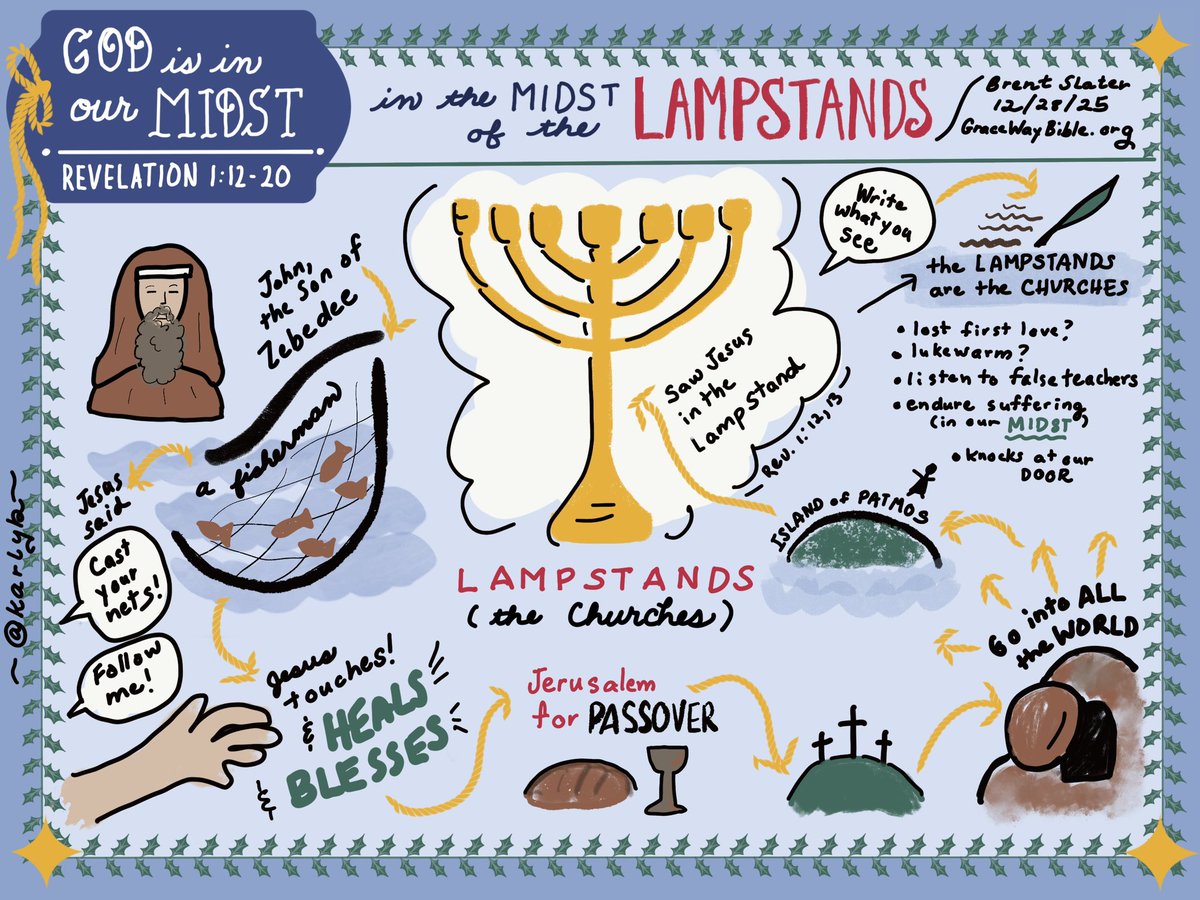 GOD is in
our MIDST
REVELATION 1:12-20
in the MIDST
of the
LAMPSTANDS
Brent Slater
12/28/25
GraceWayBible.org
John,
the Son of
Zebedee
a fisherman
Jesus
said
Cast
your
nets!
Follow
me!
~@karlyk~
Jesus
touches!
& HEALS
& BLESSES
Jerusalem
for PASSOVER
Go into ALL
the WORLD
ISLAND of PATMOS
Saw Jesus
in the
Lampstand
Rev. 1:12,13
LAMPSTANDS
(the Churches)
Write
what you
see
the LAMPSTANDS
are the CHURCHES
• lost first love?
• lukewarm?
• listen to false teachers
• endure suffering
(in our MIDST)
• knocks at our
DOOR